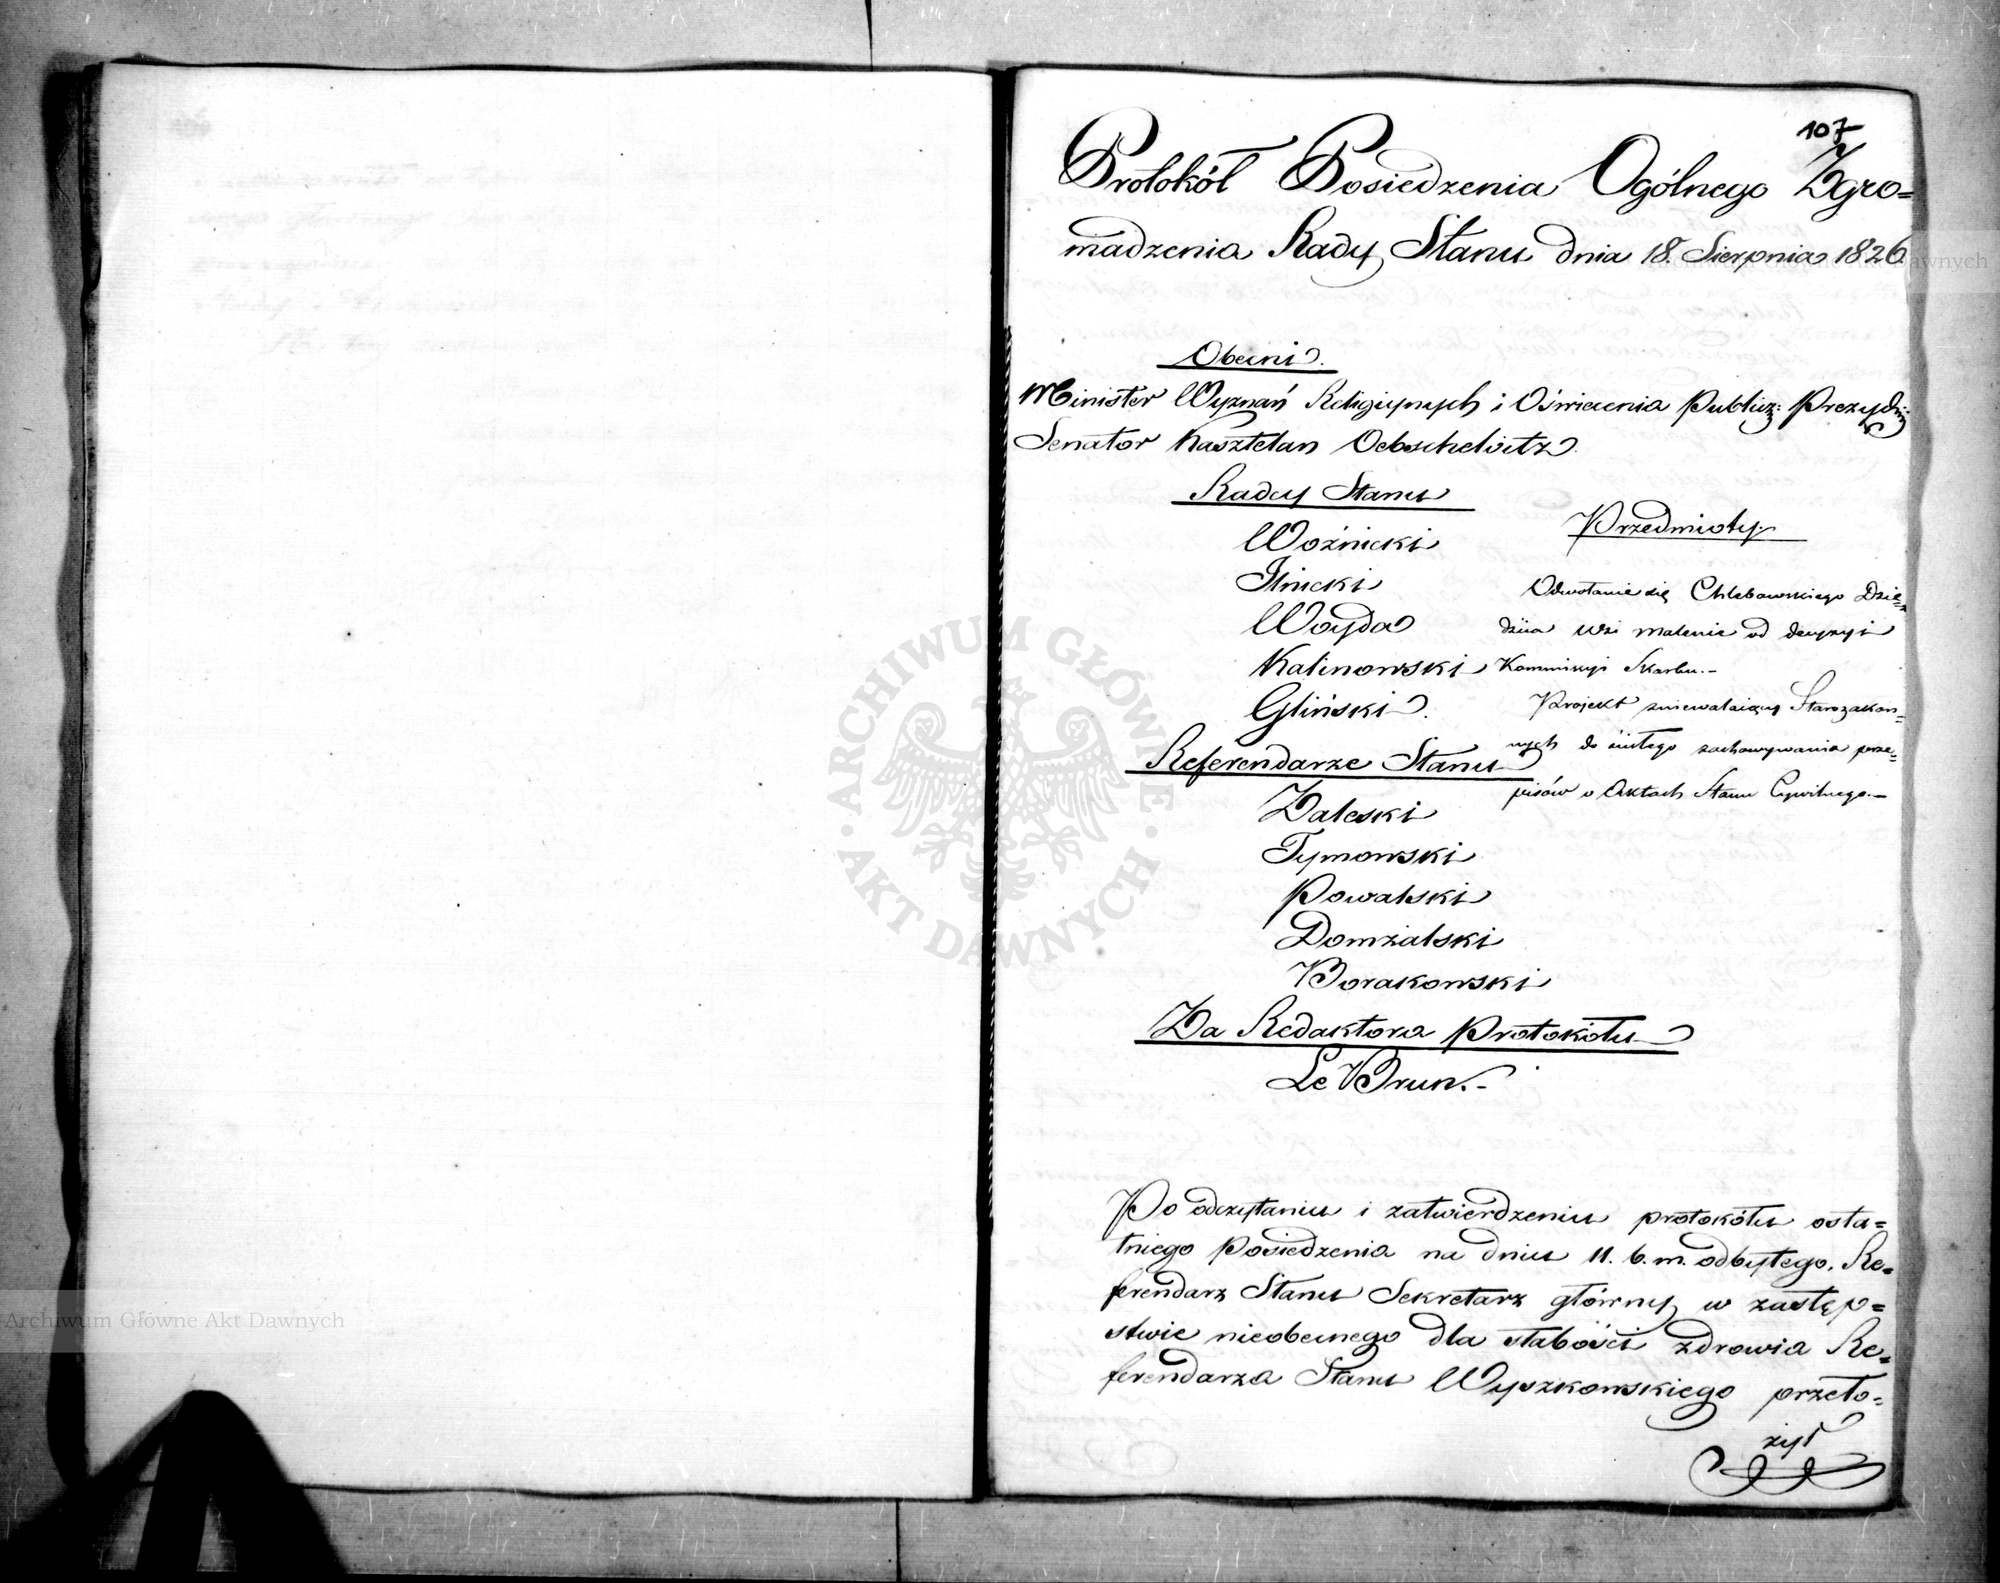 107
Protokół Posiedzenia Ogólnego Zgro=
madzenia Rady Stanu dnia 18. Sierpnia 1826
Obecni.
Minister Wyznań Religijnych i Oświecenia Publicz: Prezyd:
Senator Kasztelan Oebschelwitz.
Radcy Stanu
Woźnicki
Ilnicki
Woyda
Kalinowski
Gliński.
Referendarze Stanu
Zaleski
Tymowski
Powalski
Domżalski
Borakowski
Za Redaktora Protokółu
Le Brun.-
Przedmioty.
Odwołanie się Chlebowskiego Dzie=
dzica wsi Malenie od decyzyi
Kommissyi Skarbu.-
Projekt zniewalaiący Starozakon=
nych do ścisłego zachowywania prze=
pisów o Aktach Stanu Cywilnego.-
Po odczytaniu i zatwierdzeniu protokółu osta=
tniego Posiedzenia na dniu 11. b. m. odbytego, Re=
ferendarz Stanu Sekretarz główny w zastęp=
stwie nieobecnego dla słabości zdrowia Re=
ferendarza Stanu Wyszkowskiego przeło=
żył
ARCHIWUM GŁÓWNE
AKT DAWNYCH
Archiwum Główne Akt Dawnych